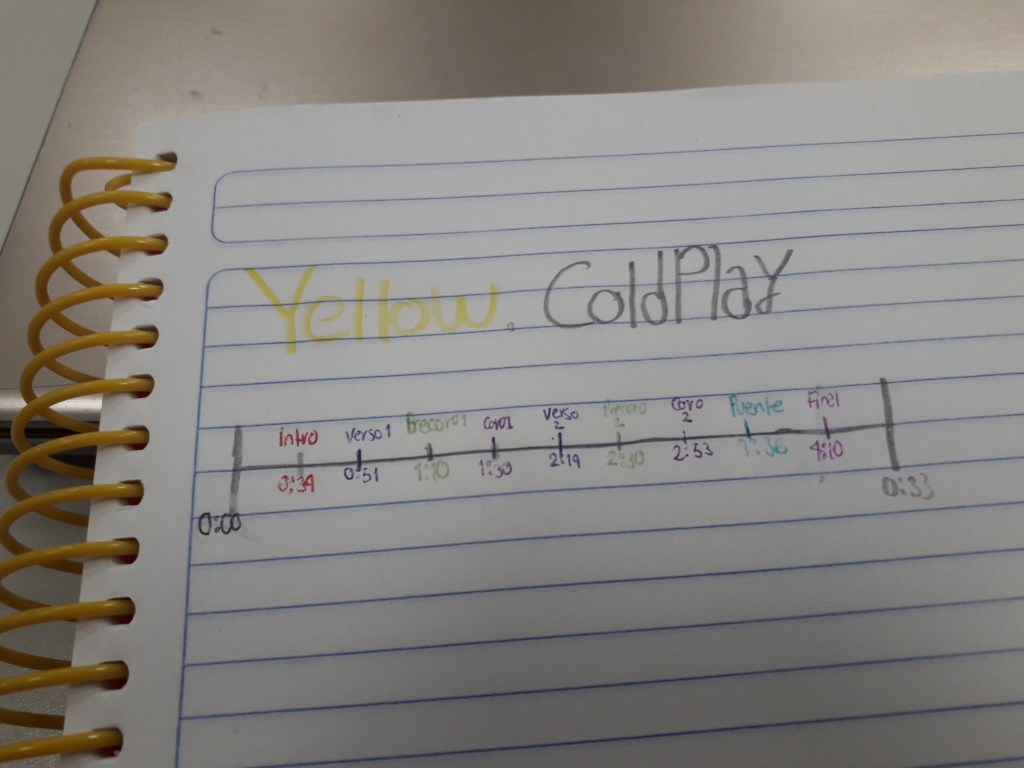 Yellow. ColdPlay
intro verso1 Precoro1 Coro1 verso 2 2 Coro 2 Puente Final
0:34 0:51 1:10 1:30 2:19 2:30 2:53 3:36 4:10
0:00 0:33